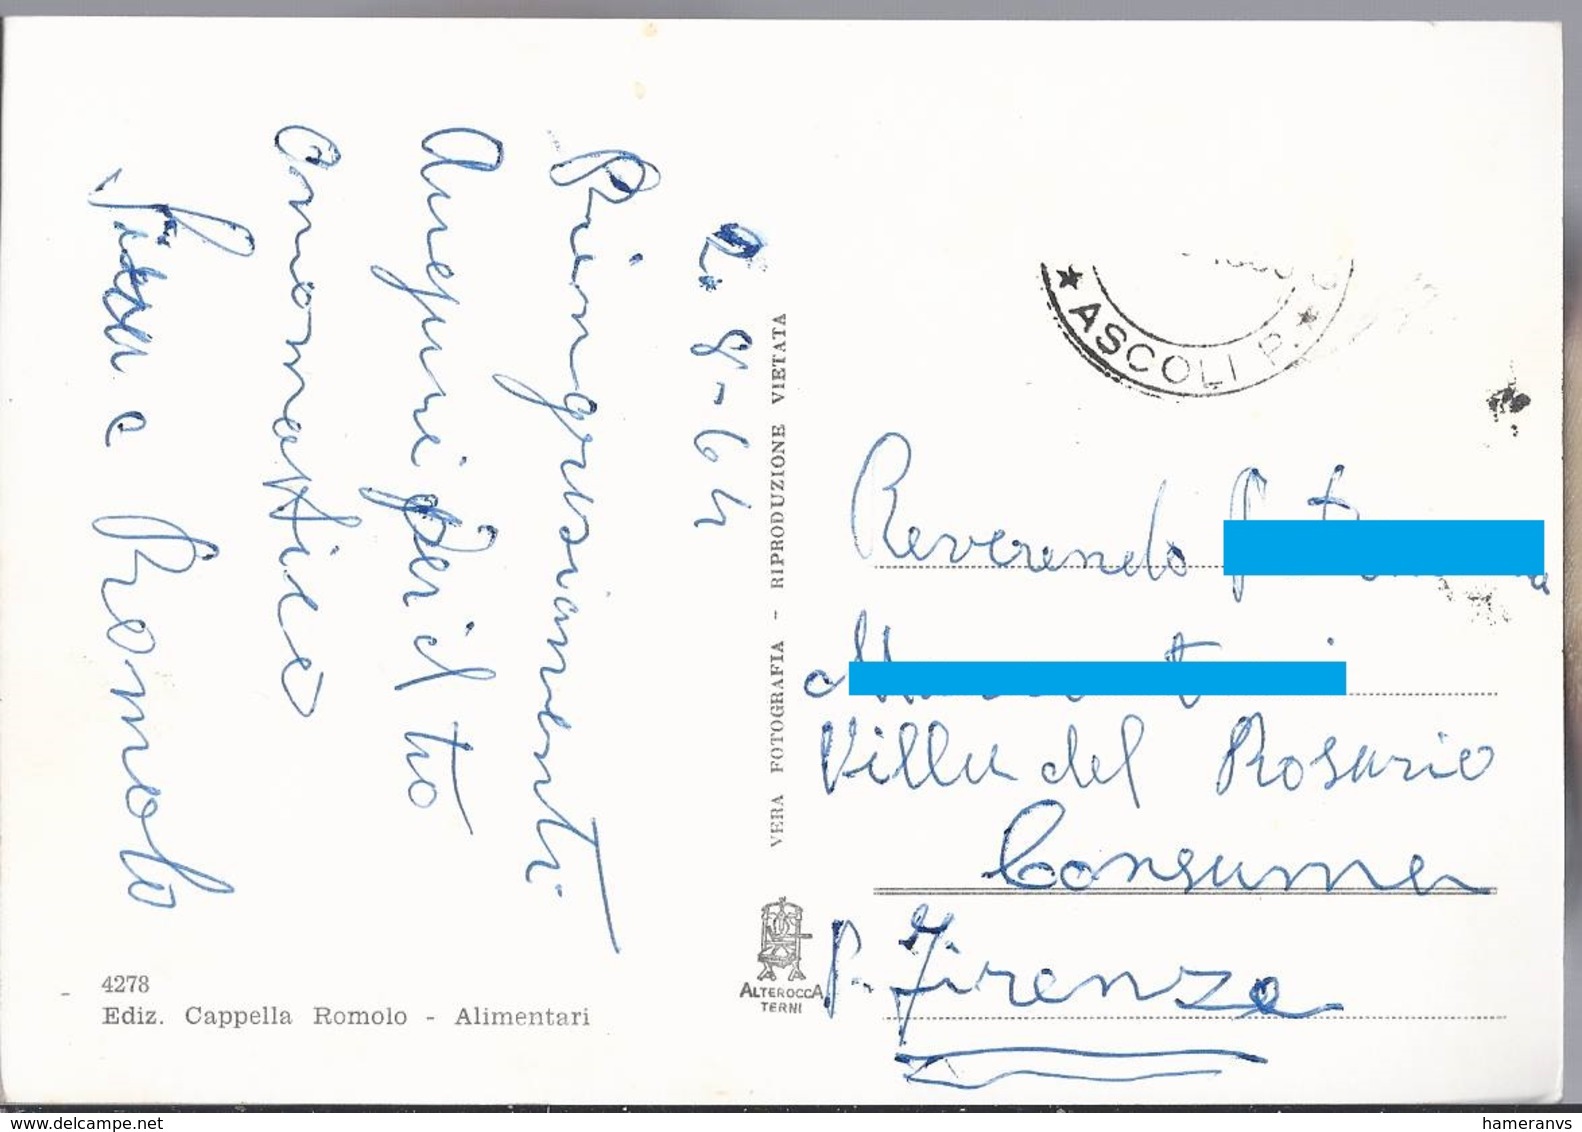 2. 8-64
Ringraziamenti
Auguri per il tuo
onomastico
e Romolo
4278
Ediz. Cappella Romolo - Alimentari
VERA FOTOGRAFIA - RIPRODUZIONE VIETATA
ALTEROCCA
TERNI
★ ASCOLI P. ★
Reverendo
Villa del Rosario
Consuma
P. Firenze
www.delcampe.net
hameranvs